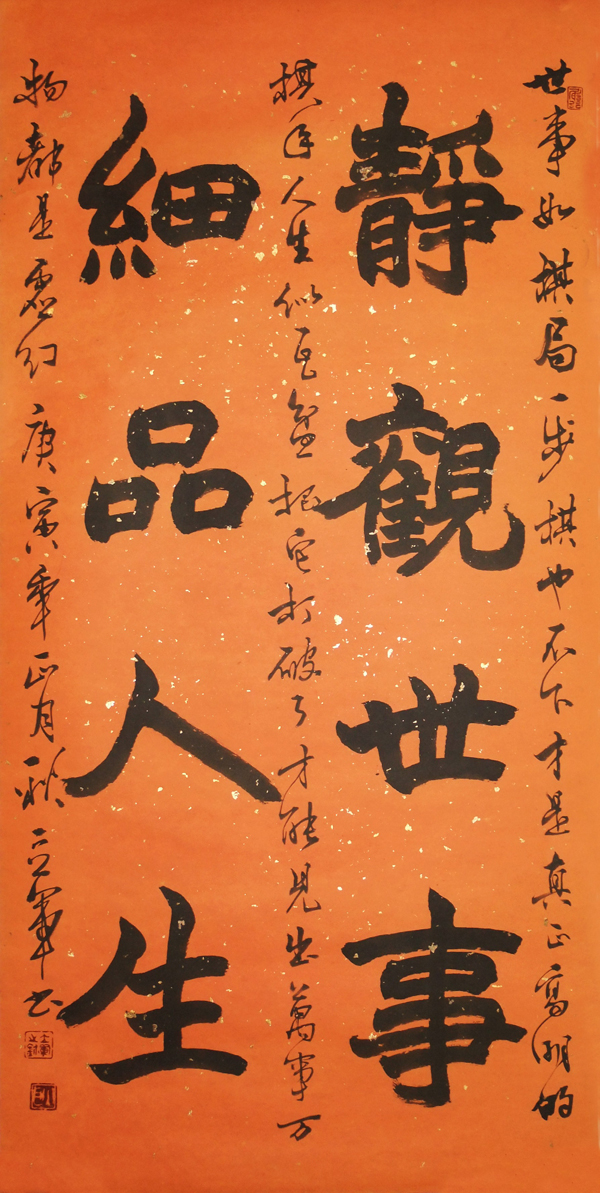 世事如棋局一步棋也不下才是真正高明的
靜觀世事
棋手人生似瓦盆把它打破了才能見出萬事万
細品人生
物都是虚幻 庚寅年正月 立軍书